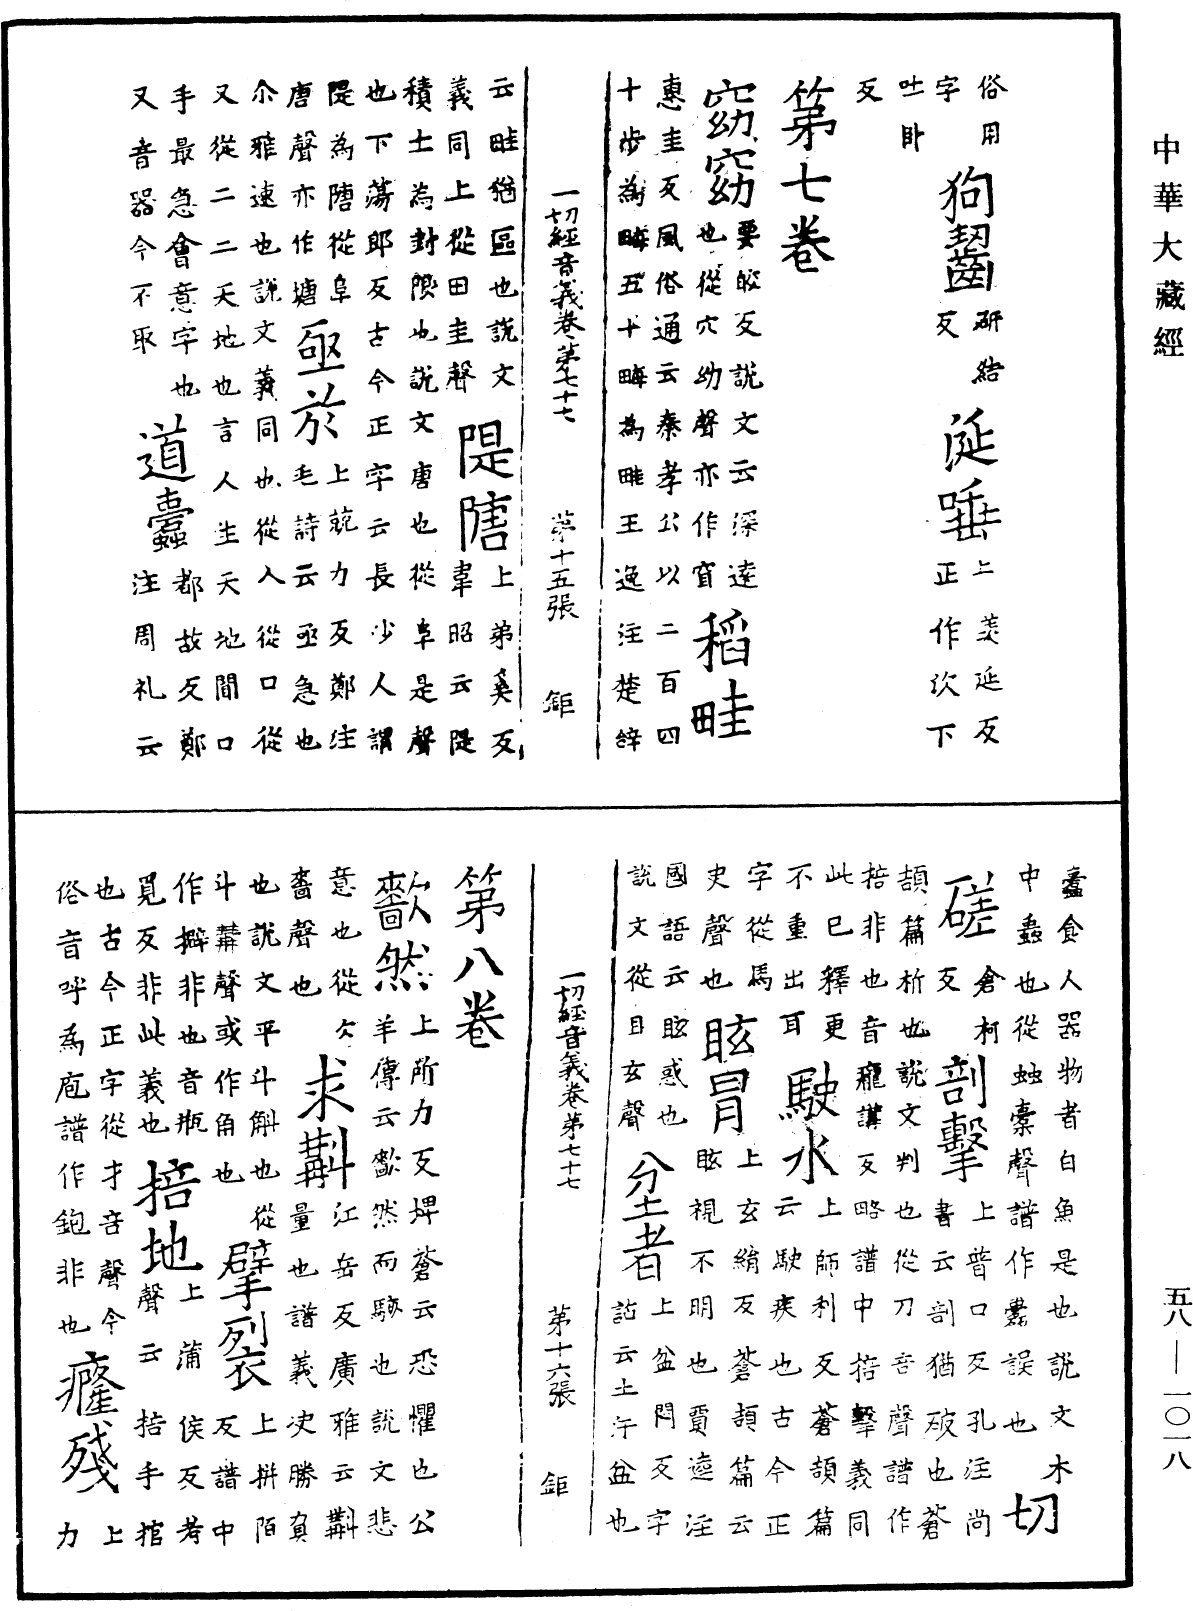 中華大藏經
俗用
字
吐卧
反
狗齧研結反
涎唾上羨延反正作㳄下
第七卷
窈窈要皎反說文云深遠也從穴幼聲亦作窅
稻畦
惠圭反風俗通云秦孝公以二百四
十步為畮五十畮為畦王逸注楚辞
一切經音義卷第七十七 第十五張 鉅
云畦猶區也說文
義同上從田圭聲
隄隚上弟奚反韋昭云隄
積土為封限也說文唐也從阜是聲
也下蕩郎反古今正字云長沙人謂
隄為隚從阜
唐聲亦作塘
亟於上兢力反鄭注毛詩云亟急也
尒雅速也說文義同也從人從口從
又從二二天地也言人生天地間口
手最急會意字也
又音器今不取
道蠹都故反鄭注周礼云
蠹食人器物者白魚是也說文木
中蟲也從䖵橐聲譜作蠧誤也
切磋倉柯反
剖擊上普口反孔注尚書云剖猶破也蒼
頡篇析也說文判也從刀咅聲譜作
掊非也音龐講反略譜中掊擊義同
此已釋更
不重出耳
駛水上師利反蒼頡篇云駛疾也古今正
字從馬
史聲也
眩冒上玄絹反蒼頡篇云眩視不明也賈逵注
國語云眩惑也
說文從目玄聲
坌者上盆悶反字詁云土汙坌也
一切經音義卷第七十七 第十六張 鉅
第八卷
歗然上所力反埤蒼云恐懼也公羊傳云歗然而駭也說文悲
意也從欠
嗇聲也
求㪺江岳反廣雅云㪺量也譜義決勝負
也說文平斗斛也從
斗冓聲或作角也
擘裂上拼陌反譜中
作擗非也音瓶
覓反非此義也
掊地上蒲侯反考聲云掊手掊
也古今正字從才咅聲今
俗音呼為庖譜作鉋非也
癃殘上力
五八—一〇一八